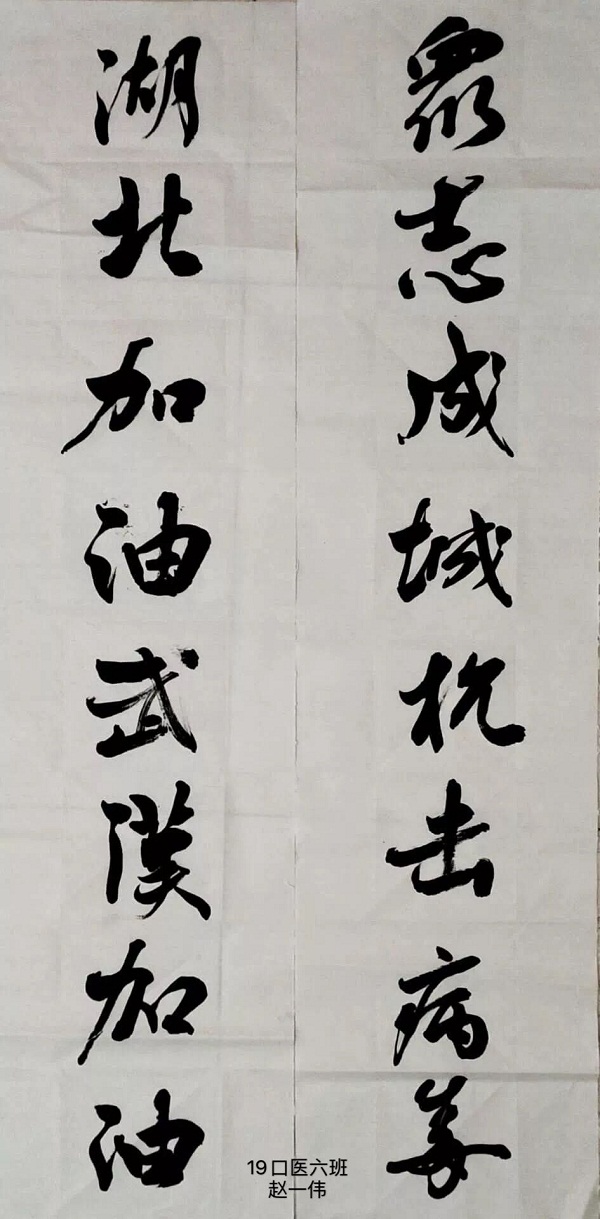 眾志成城抗击病毒
湖北加油武漢加油
19口医六班
赵一伟